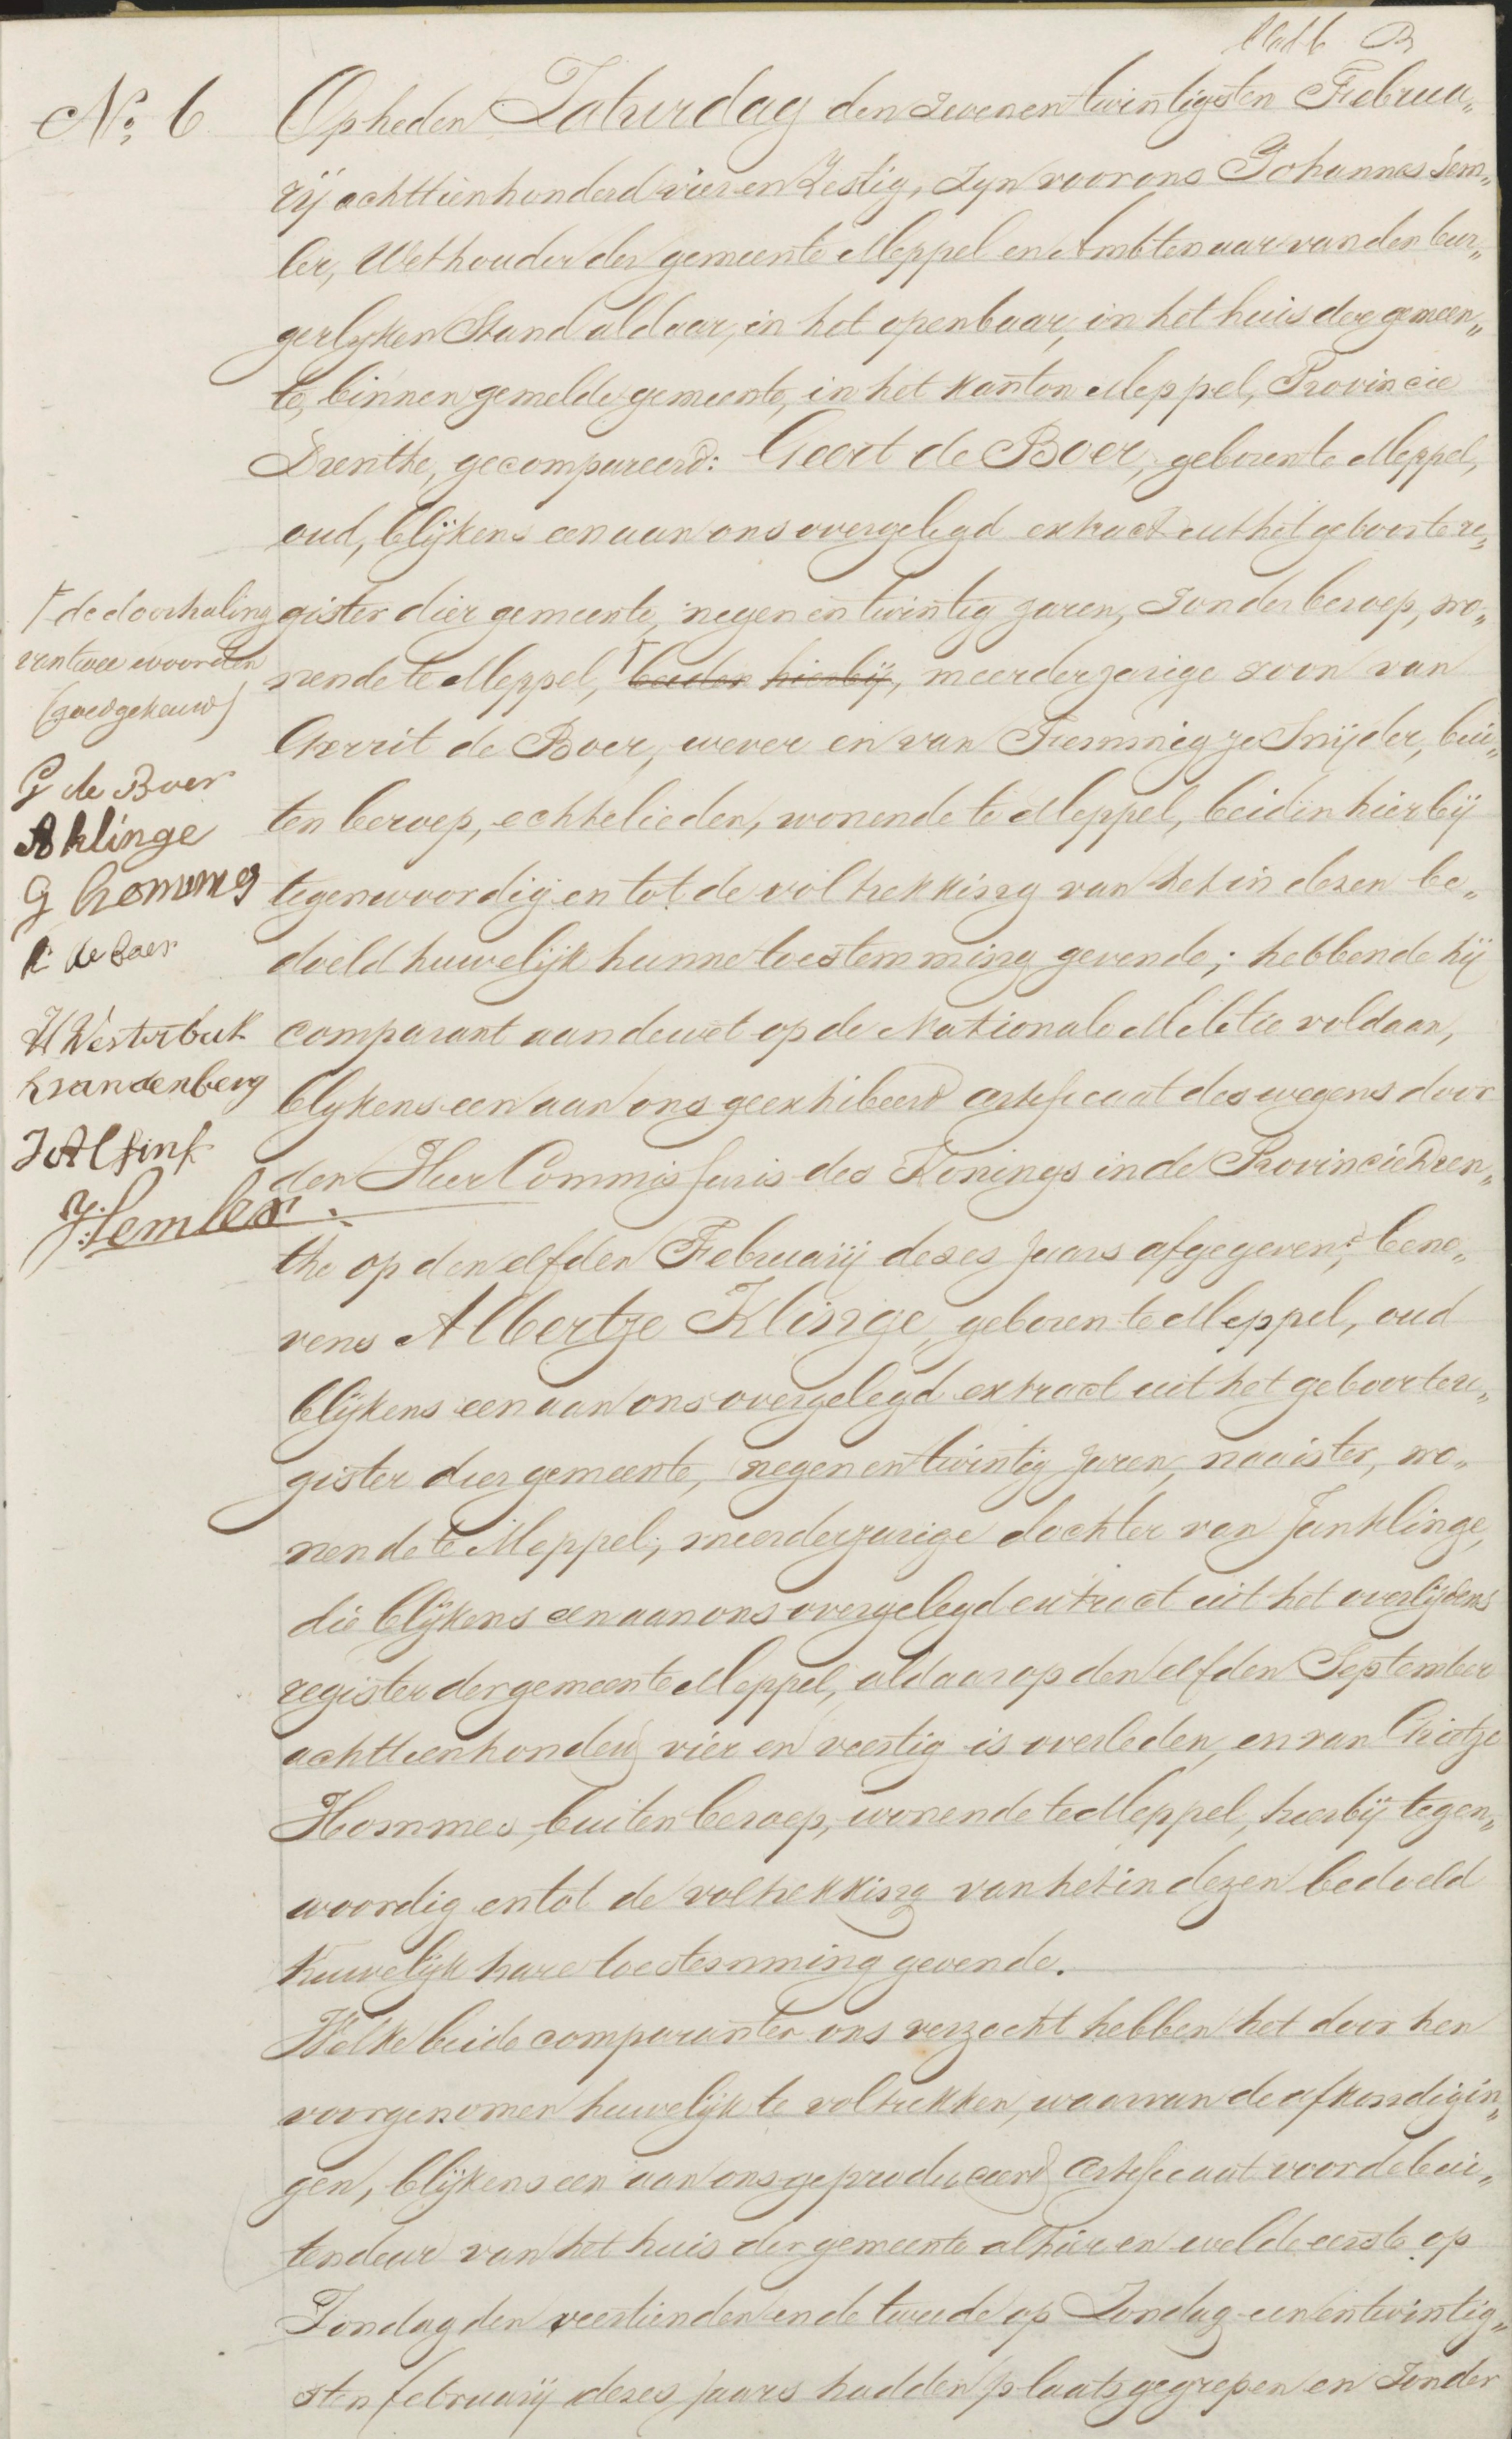 No. 6
Opheden Zaturdag den zevenentwintigsten Februa„
rij achttienhonderd vier en Zestig, zyn voor ons Johannes Sem„
ler, Wethouder der gemeente Meppel en Ambtenaar van den bur„
gerlyken Stand aldaar, in het openbaar, in het huis der gemeen„
te, binnen gemelde gemeente, in het kanton Meppel, Provincie
Drenthe, gecompareerd: Geert de Boer, geboren te Meppel,
oud, blijkens een aan ons overgelegd extract uit het geboorte re„
gister dier gemeente, negen en twintig jaren, zonder beroep, wo„
nende te Meppel, ⌈ beiden hierbij, meerderjarige zoon van
Gerrit de Boer, wever en van Femmigje Snijder, bui„
ten beroep, echtelieden, wonende te Meppel, beiden hierbij
tegenwoordig en tot de voltrekking van het in dezen be„
doeld huwelijk hunne toestemming gevende; hebbende hij
comparant aan de wet op de Nationale Militie voldaan,
blykens een aan ons geexhibeerd certificaat deswegens door
den Heer Commissaris des Konings in de Provincie Dren„
the op den elfden Februarij dezes jaars afgegeven; bene„
vens Albertje Klinge, geboren te Meppel, oud
blijkens een aan ons overgelegd extract uit het geboortere„
gister dier gemeente, negen en twintig jaren, naaister, wo„
nende te Meppel, meerderjarige dochter van Jan Klinge,
die blijkens een aan ons overgelegd extract uit het overlijdens
register der gemeente Meppel, aldaar op den elfden September
achttienhonderd vier en veertig is overleden, en van Grietje
Hommes, buiten beroep, wonende te Meppel, hierbij tegen„
woordig en tot de voltrekking van het in dezen bedoeld
huwelijk hare toestemming gevende.
Welke beide comparanten ons verzocht hebben het door hen
voorgenomen huwelijk te voltrekken, waarvan de afkondigin„
gen, blijkens een aan ons geproduceerd certificaat voor de bui„
tendeur van het huis der gemeente alhier en wel de eerste op
Zondag den veertienden en de tweede op Zondag een en twintig„
sten februarij dezes jaars hadden plaats gegrepen en zonder
⌈ de doorhaling
van twee woorden
(goedgekeurd)
G de Boer
A klinge
G hommes
de Boer
H Westerbeek
J Alfink
J. Semler.